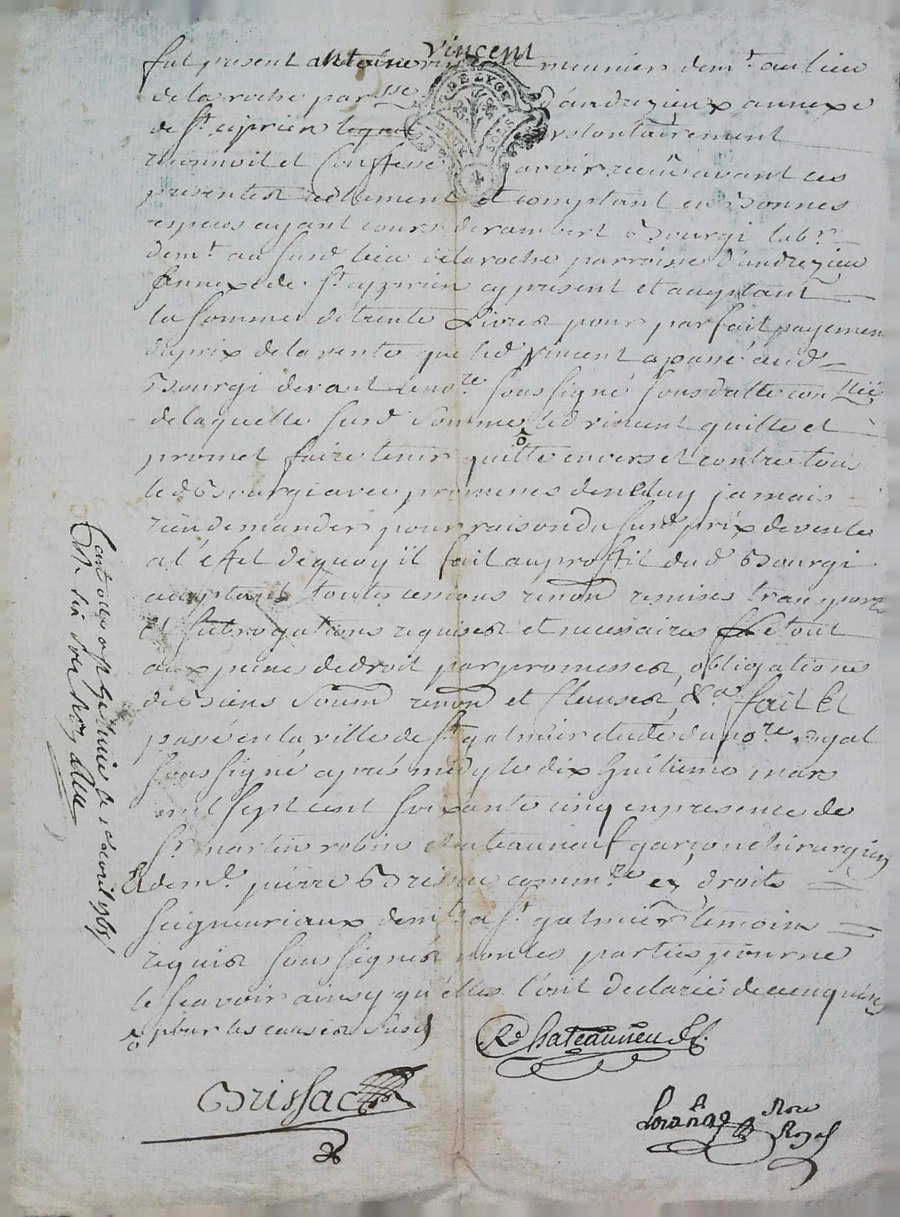 vincent
fut present antoine vincent meunier demt. au lieu
de la roche parsse. d'andrezieux annexe
de st. ciprien lequel volontairement
reconnoit et Confesse avoir reçeu avant ces
presentes réellement et comptant en bonnes
especes ayant cours de rambert Bourgi labr.
demt. au susd. lieu de laroche parroisse d'andrezieu
annexe de st. cyprien cy present et acceptant
la somme de trente Livres pour parfait payemen
du prix de la vente que led. vincent a passé aud.
Bourgi devant le nore. soussigné sous datte
de laquelle susd. somme led. vincent quitte et
promet faire tenir quitte envers et contre tous
le d. Bourgi avec promesses de ne luy jamais
rien demander pour raison du susd. prix de vente
a l'effet de quoy il fait au proffit dud. Bourgi
acceptant toutes cessions remises transports
et subrogations requises et necessaires Le tout
aux peines de droit par promesses, obligations
de biens soum. renon. et clauses &a. fait Et
passé en la ville de st. galmier etude du nore. royal
soussigné apres midy le dix huitieme mars
mil sept cent soixante cinq en presence de
sr. martin robin chateauneuf garçon chirurgien
Et de mr. pierre Brissac commre. es droits
seigneuriaux demt. a st. galmier temoins
requis soussignés non les parties pour ne
le scavoir ainsy qu'elles l'ont declaré de ce enquises
pour les causes susd.
Rn. Chateauneuf
Brissac
Nore
Royal
avril 1765